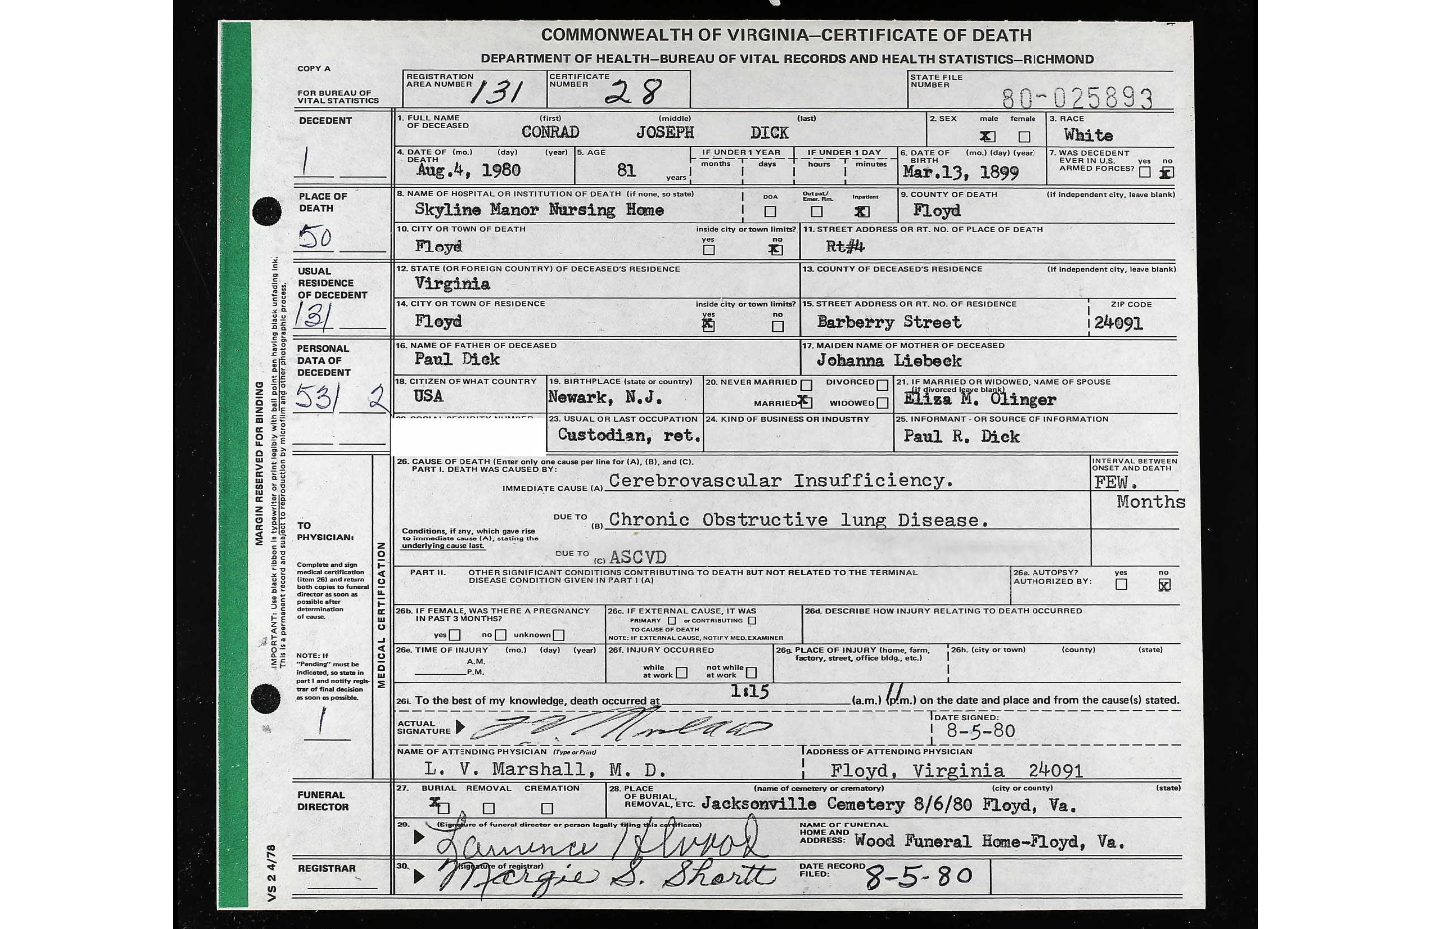 COMMONWEALTH OF VIRGINIA—CERTIFICATE OF DEATH
DEPARTMENT OF HEALTH—BUREAU OF VITAL RECORDS AND HEALTH STATISTICS—RICHMOND
COPY A
FOR BUREAU OF VITAL STATISTICS
REGISTRATION AREA NUMBER 131
CERTIFICATE NUMBER 28
STATE FILE NUMBER 80-025893
DECEDENT
1
1. FULL NAME OF DECEASED (first) (middle) (last)
CONRAD JOSEPH DICK
2. SEX male female
X
3. RACE
White
4. DATE OF DEATH (mo.) (day) (year)
Aug.4, 1980
5. AGE
81 years
IF UNDER 1 YEAR months days
IF UNDER 1 DAY hours minutes
6. DATE OF BIRTH (mo.) (day) (year)
Mar.13, 1899
7. WAS DECEDENT EVER IN U.S. ARMED FORCES? yes no
X
PLACE OF DEATH
50
8. NAME OF HOSPITAL OR INSTITUTION OF DEATH (if none, so state)
Skyline Manor Nursing Home
DOA Out pat./Emer. Rm. Inpatient
X
9. COUNTY OF DEATH (if independent city, leave blank)
Floyd
10. CITY OR TOWN OF DEATH inside city or town limits? yes no
Floyd X
11. STREET ADDRESS OR RT. NO. OF PLACE OF DEATH
Rt#4
USUAL RESIDENCE OF DECEDENT
131
12. STATE (OR FOREIGN COUNTRY) OF DECEASED'S RESIDENCE
Virginia
13. COUNTY OF DECEASED'S RESIDENCE (if independent city, leave blank)
14. CITY OR TOWN OF RESIDENCE inside city or town limits? yes no
Floyd X
15. STREET ADDRESS OR RT. NO. OF RESIDENCE ZIP CODE
Barberry Street 24091
PERSONAL DATA OF DECEDENT
531 2
16. NAME OF FATHER OF DECEASED
Paul Dick
17. MAIDEN NAME OF MOTHER OF DECEASED
Johanna Liebeck
18. CITIZEN OF WHAT COUNTRY
USA
19. BIRTHPLACE (state or country)
Newark, N.J.
20. NEVER MARRIED DIVORCED
MARRIED X WIDOWED
21. IF MARRIED OR WIDOWED, NAME OF SPOUSE
(if divorced leave blank)
Eliza M. Olinger
23. USUAL OR LAST OCCUPATION
Custodian, ret.
24. KIND OF BUSINESS OR INDUSTRY
25. INFORMANT - OR SOURCE OF INFORMATION
Paul R. Dick
26. CAUSE OF DEATH (Enter only one cause per line for (A), (B), and (C).
PART I. DEATH WAS CAUSED BY:
INTERVAL BETWEEN ONSET AND DEATH
IMMEDIATE CAUSE (A) Cerebrovascular Insufficiency. FEW.
Months
DUE TO (B) Chronic Obstructive lung Disease.
Conditions, if any, which gave rise to immediate cause (A), stating the underlying cause last.
DUE TO (C) ASCVD
PART II. OTHER SIGNIFICANT CONDITIONS CONTRIBUTING TO DEATH BUT NOT RELATED TO THE TERMINAL DISEASE CONDITION GIVEN IN PART I (A)
26a. AUTOPSY? AUTHORIZED BY: yes no
X
26b. IF FEMALE, WAS THERE A PREGNANCY IN PAST 3 MONTHS?
yes no unknown
26c. IF EXTERNAL CAUSE, IT WAS
PRIMARY or CONTRIBUTING
TO CAUSE OF DEATH
NOTE: IF EXTERNAL CAUSE, NOTIFY MED. EXAMINER
26d. DESCRIBE HOW INJURY RELATING TO DEATH OCCURRED
26e. TIME OF INJURY (mo.) (day) (year)
A.M.
P.M.
26f. INJURY OCCURRED
while at work not while at work
26g. PLACE OF INJURY (home, farm, factory, street, office bldg., etc.)
26h. (city or town) (county) (state)
26i. To the best of my knowledge, death occurred at 1:15 (a.m.) (p.m.) on the date and place and from the cause(s) stated.
ACTUAL SIGNATURE
DATE SIGNED:
8-5-80
NAME OF ATTENDING PHYSICIAN (Type or Print)
L. V. Marshall, M. D.
ADDRESS OF ATTENDING PHYSICIAN
Floyd, Virginia 24091
TO PHYSICIAN:
Complete and sign medical certification (item 26) and return both copies to funeral director as soon as possible after determination of cause.
NOTE: If "Pending" must be indicated, so state in part I and notify registrar of final decision as soon as possible.
1
MEDICAL CERTIFICATION
FUNERAL DIRECTOR
27. BURIAL REMOVAL CREMATION
X
28. PLACE OF BURIAL, REMOVAL, ETC. (name of cemetery or crematory) (city or county) (state)
Jacksonville Cemetery 8/6/80 Floyd, Va.
29. (Signature of funeral director or person legally filing this certificate)
Lawrence H Wood
NAME OF FUNERAL HOME AND ADDRESS: Wood Funeral Home-Floyd, Va.
REGISTRAR
30. (Signature of registrar)
Margie S. Shortt
DATE RECORD FILED: 8-5-80
MARGIN RESERVED FOR BINDING
IMPORTANT: Use black ribbon in typewriter or print legibly with ball point pen having black unfading ink.
This is a permanent record and subject to reproduction by microfilm and other photographic process.
VS 2 4/78